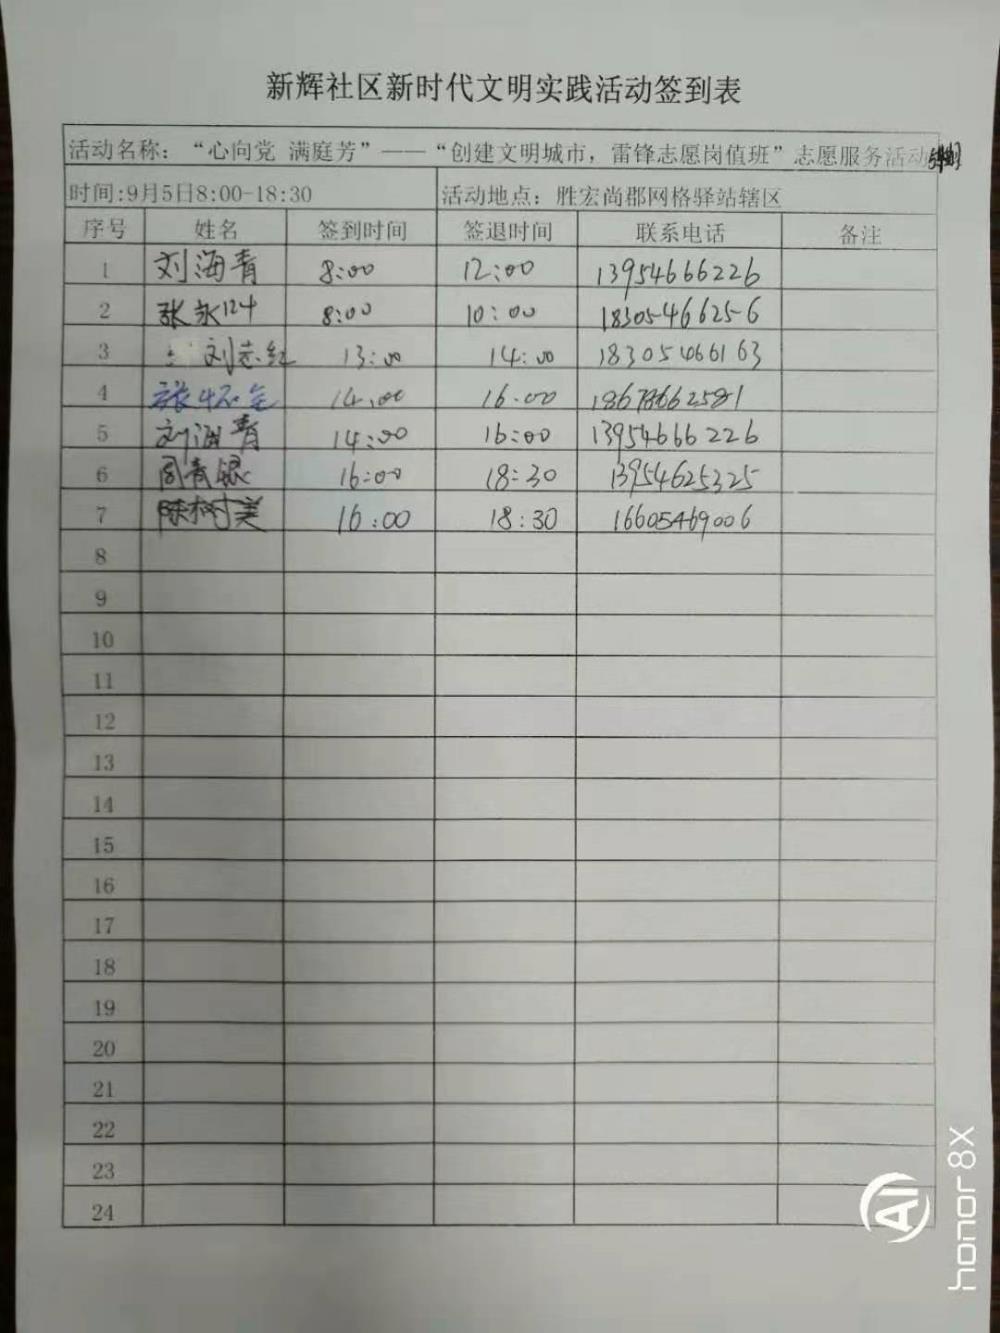 新辉社区新时代文明实践活动签到表
活动名称：“心向党 满庭芳”——“创建文明城市，雷锋志愿岗值班”志愿服务活动
时间:9月5日8:00-18:30 活动地点：胜宏尚郡网格驿站辖区
序号 姓名 签到时间 签退时间 联系电话 备注
1 刘海青 8:00 12:00 13954666226
2 张永 8:00 10:00 18305466256
3 刘志红 13:00 14:00 18305466163
4 张怀全 14:00 16:00 18678662581
5 刘海青 14:00 16:00 13954666226
6 周青银 16:00 18:30 13954625325
7 陈树美 16:00 18:30 16605469006
8
9
10
11
12
13
14
15
16
17
18
19
20
21
22
23
24
AI
honor 8X